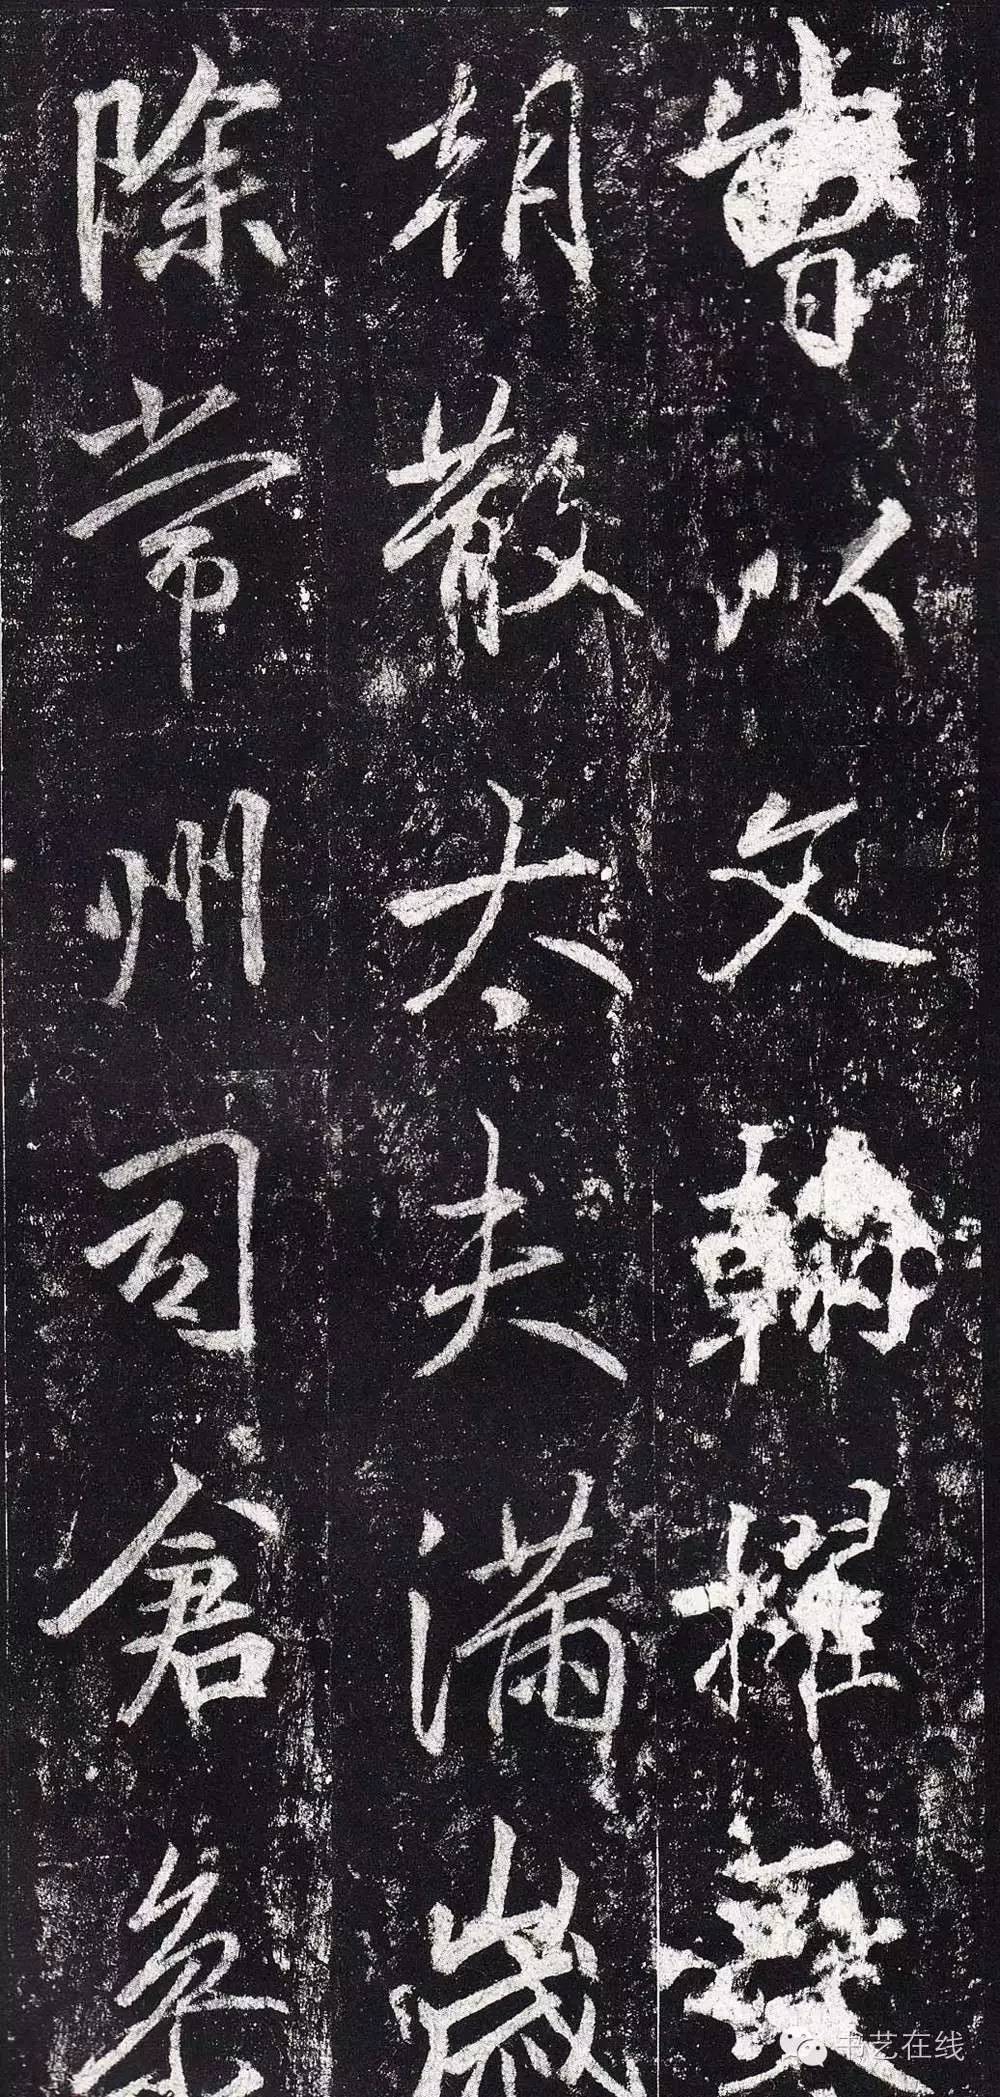 以文翰擢
朝散太夫滿歲
除常州司倉參
书艺在线